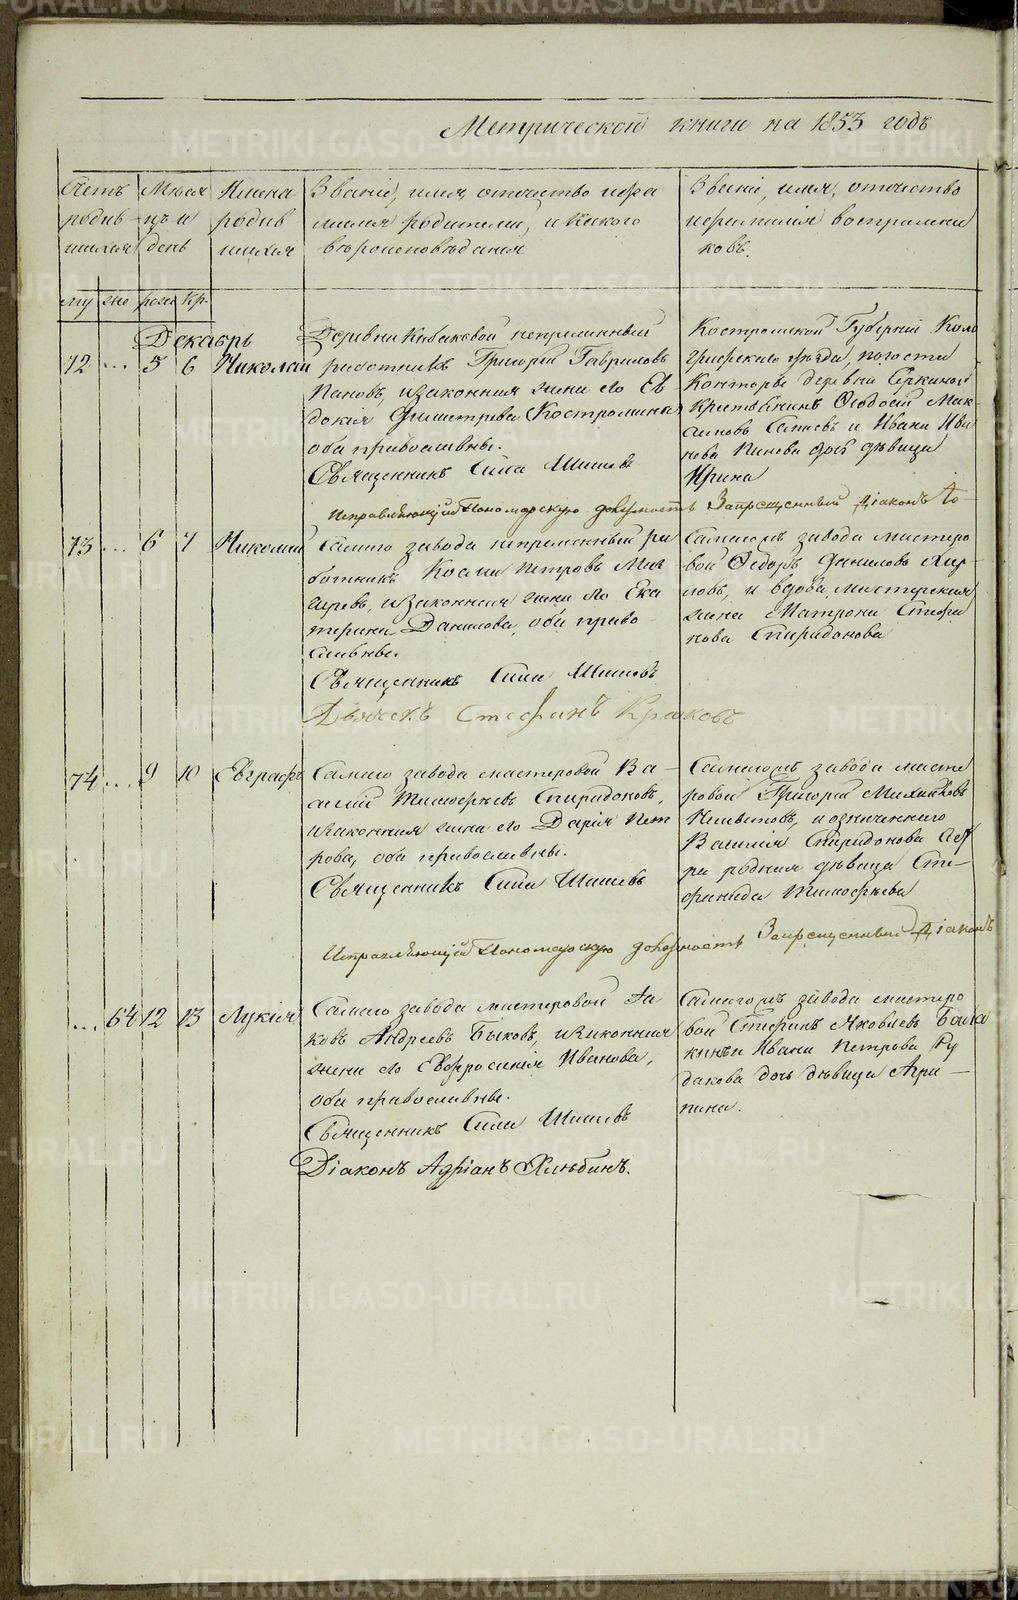 Метрической книги на 1853 годъ
Счетъ родив шихся
Мѣся цъ и день
Имена родив шихся
Званіе, имя, отчество и фа
милія родителей, и какого
вѣроисповѣданія
Званіе, имя, отчество
и фамилія воспріемни
ковъ.
му жен рож кр.
Декабрь
72 ... 5 6 Николай
Деревни непременный
работникъ Григорій Гавриловъ
Пановъ, и законная жена его Ев
докія Костромина
оба православные.
Священникъ Сила Шишевъ
Костромской Губерніи Коло
гривскаго уѣзда, погоста
деревни
крестьянинъ Ѳедосей Мак
симовъ и Ивана Ива
нова дочь дѣвица
Ирина
Исправляющій Пономарскую должность Запрещенный Діаконъ
73 ... 6 7 Николай
Самаго завода непременный ра
ботникъ Косма Петровъ
и законная жена его Ека
терина Данилова, оба право
славные.
Священникъ Сила Шишевъ
Дьячекъ Стефанъ Крюковъ
Самагожъ завода мастеро
вой Ѳедоръ Даниловъ
и вдова мастерская
жена Матрона Стефа
нова Спиридонова
74 ... 9 10 Евграфъ
Самаго завода мастеровой Ва
силій Тимофѣевъ Спиридоновъ,
и законная жена его Дарія Пет
рова, оба православные.
Священникъ Сила Шишевъ
Самагожъ завода масте
ровой Григорій Михайловъ
и означеннаго
Василія Спиридонова сест
ра родная дѣвица Сте
фанида Тимофѣева
Исправляющій Пономарскую должность Запрещенный Діаконъ
... 64 12 13 Лукія
Самаго завода мастеровой Іа
ковъ Андреевъ Быковъ, и законная
жена его Евфросинія Иванова,
оба православные.
Священникъ Сила Шишевъ
Діаконъ Адріанъ Хлѣбинъ.
Самагожъ завода мастеро
вой Стефанъ Яковлевъ
Ивана Петрова Ру
дакова дочь дѣвица Агри
пина.
METRIKI.GASO-URAL.RU